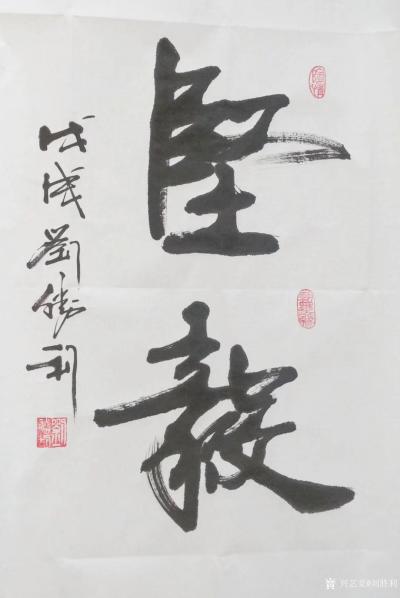 堅毅
戊戌劉勝利
@刘胜利